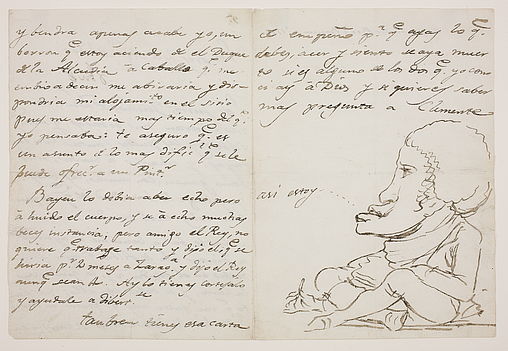 y bendra apenas acabe yo, un
borron q.e estoy aciendo de el Duque
de la Alcudia a Caballo q.e me
embio a decir me abisaria y dis-
pondria mi alojam.to en el sitio
pues me estaria mas tiempo del q.e
yo pensaba: te aseguro q.e es
un asunto de lo mas dificil q.e se le
puede ofrecer a un Pint.r
Bayeu lo debia aber echo pero
a huido el cuerpo, y se a echo muchas
beces instancia, pero amigo el Rey, no
quiere q.e trabaje tanto y dijo el q.e se
hiria p.r 2 meses a Zarag.a y dijo el Rey
sean 4. Ay lo tienes cortejalo
y ayudale a dibertirse
tambien tienes esa carta
de empeño p.a q.e agas lo q.e
debes acer y siento se aya muer
to si es alguno de los dos q.e yo cono
ci ay a Dios, y si quieres saber
mas pregunta a Clemente
asi estoy